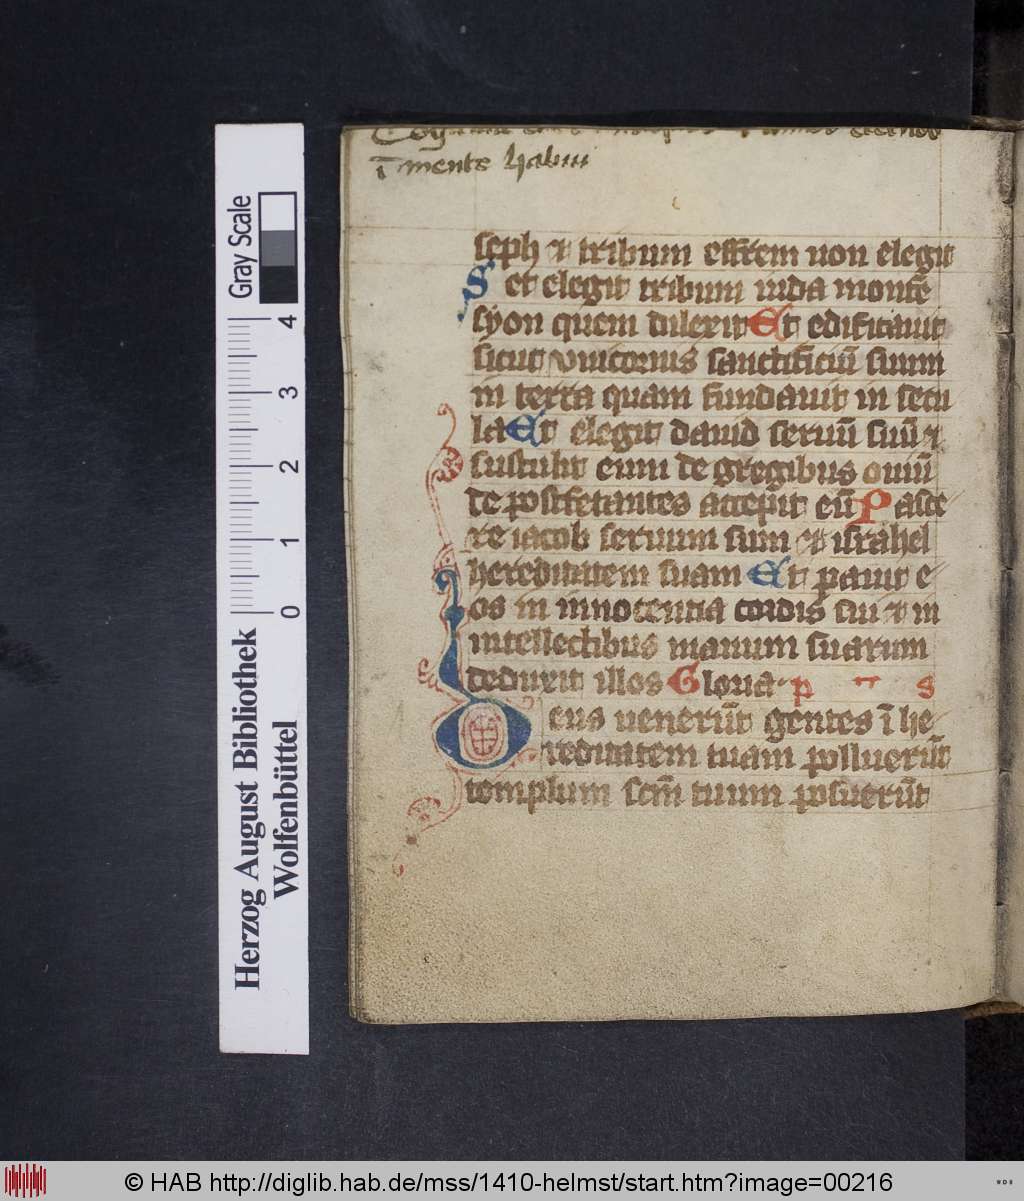 in mente habui
seph et tribum effrem non elegit
Set elegit tribum iuda monte
syon quem dilexit Et edificauit
sicut vnicornis sanctificiū suum
in terra quam fundauit in secu
la Et elegit dauid seruū suū et
sustulit eum de gregibus ouiū
de postfetantes accepit eū Pasce
re iacob seruum suum et israhel
hereditatem suam Et pauit e
os in innocentia cordis sui et in
intellectibus manuum suarum
deduxit illos Gloria p s
Deus uenerūt gentes ī he
reditatem tuam polluerūt
templum scm̄ tuum posuerūt
Gray Scale
0 1 2 3 4
Herzog August Bibliothek
Wolfenbüttel
© HAB http://diglib.hab.de/mss/1410-helmst/start.htm?image=00216